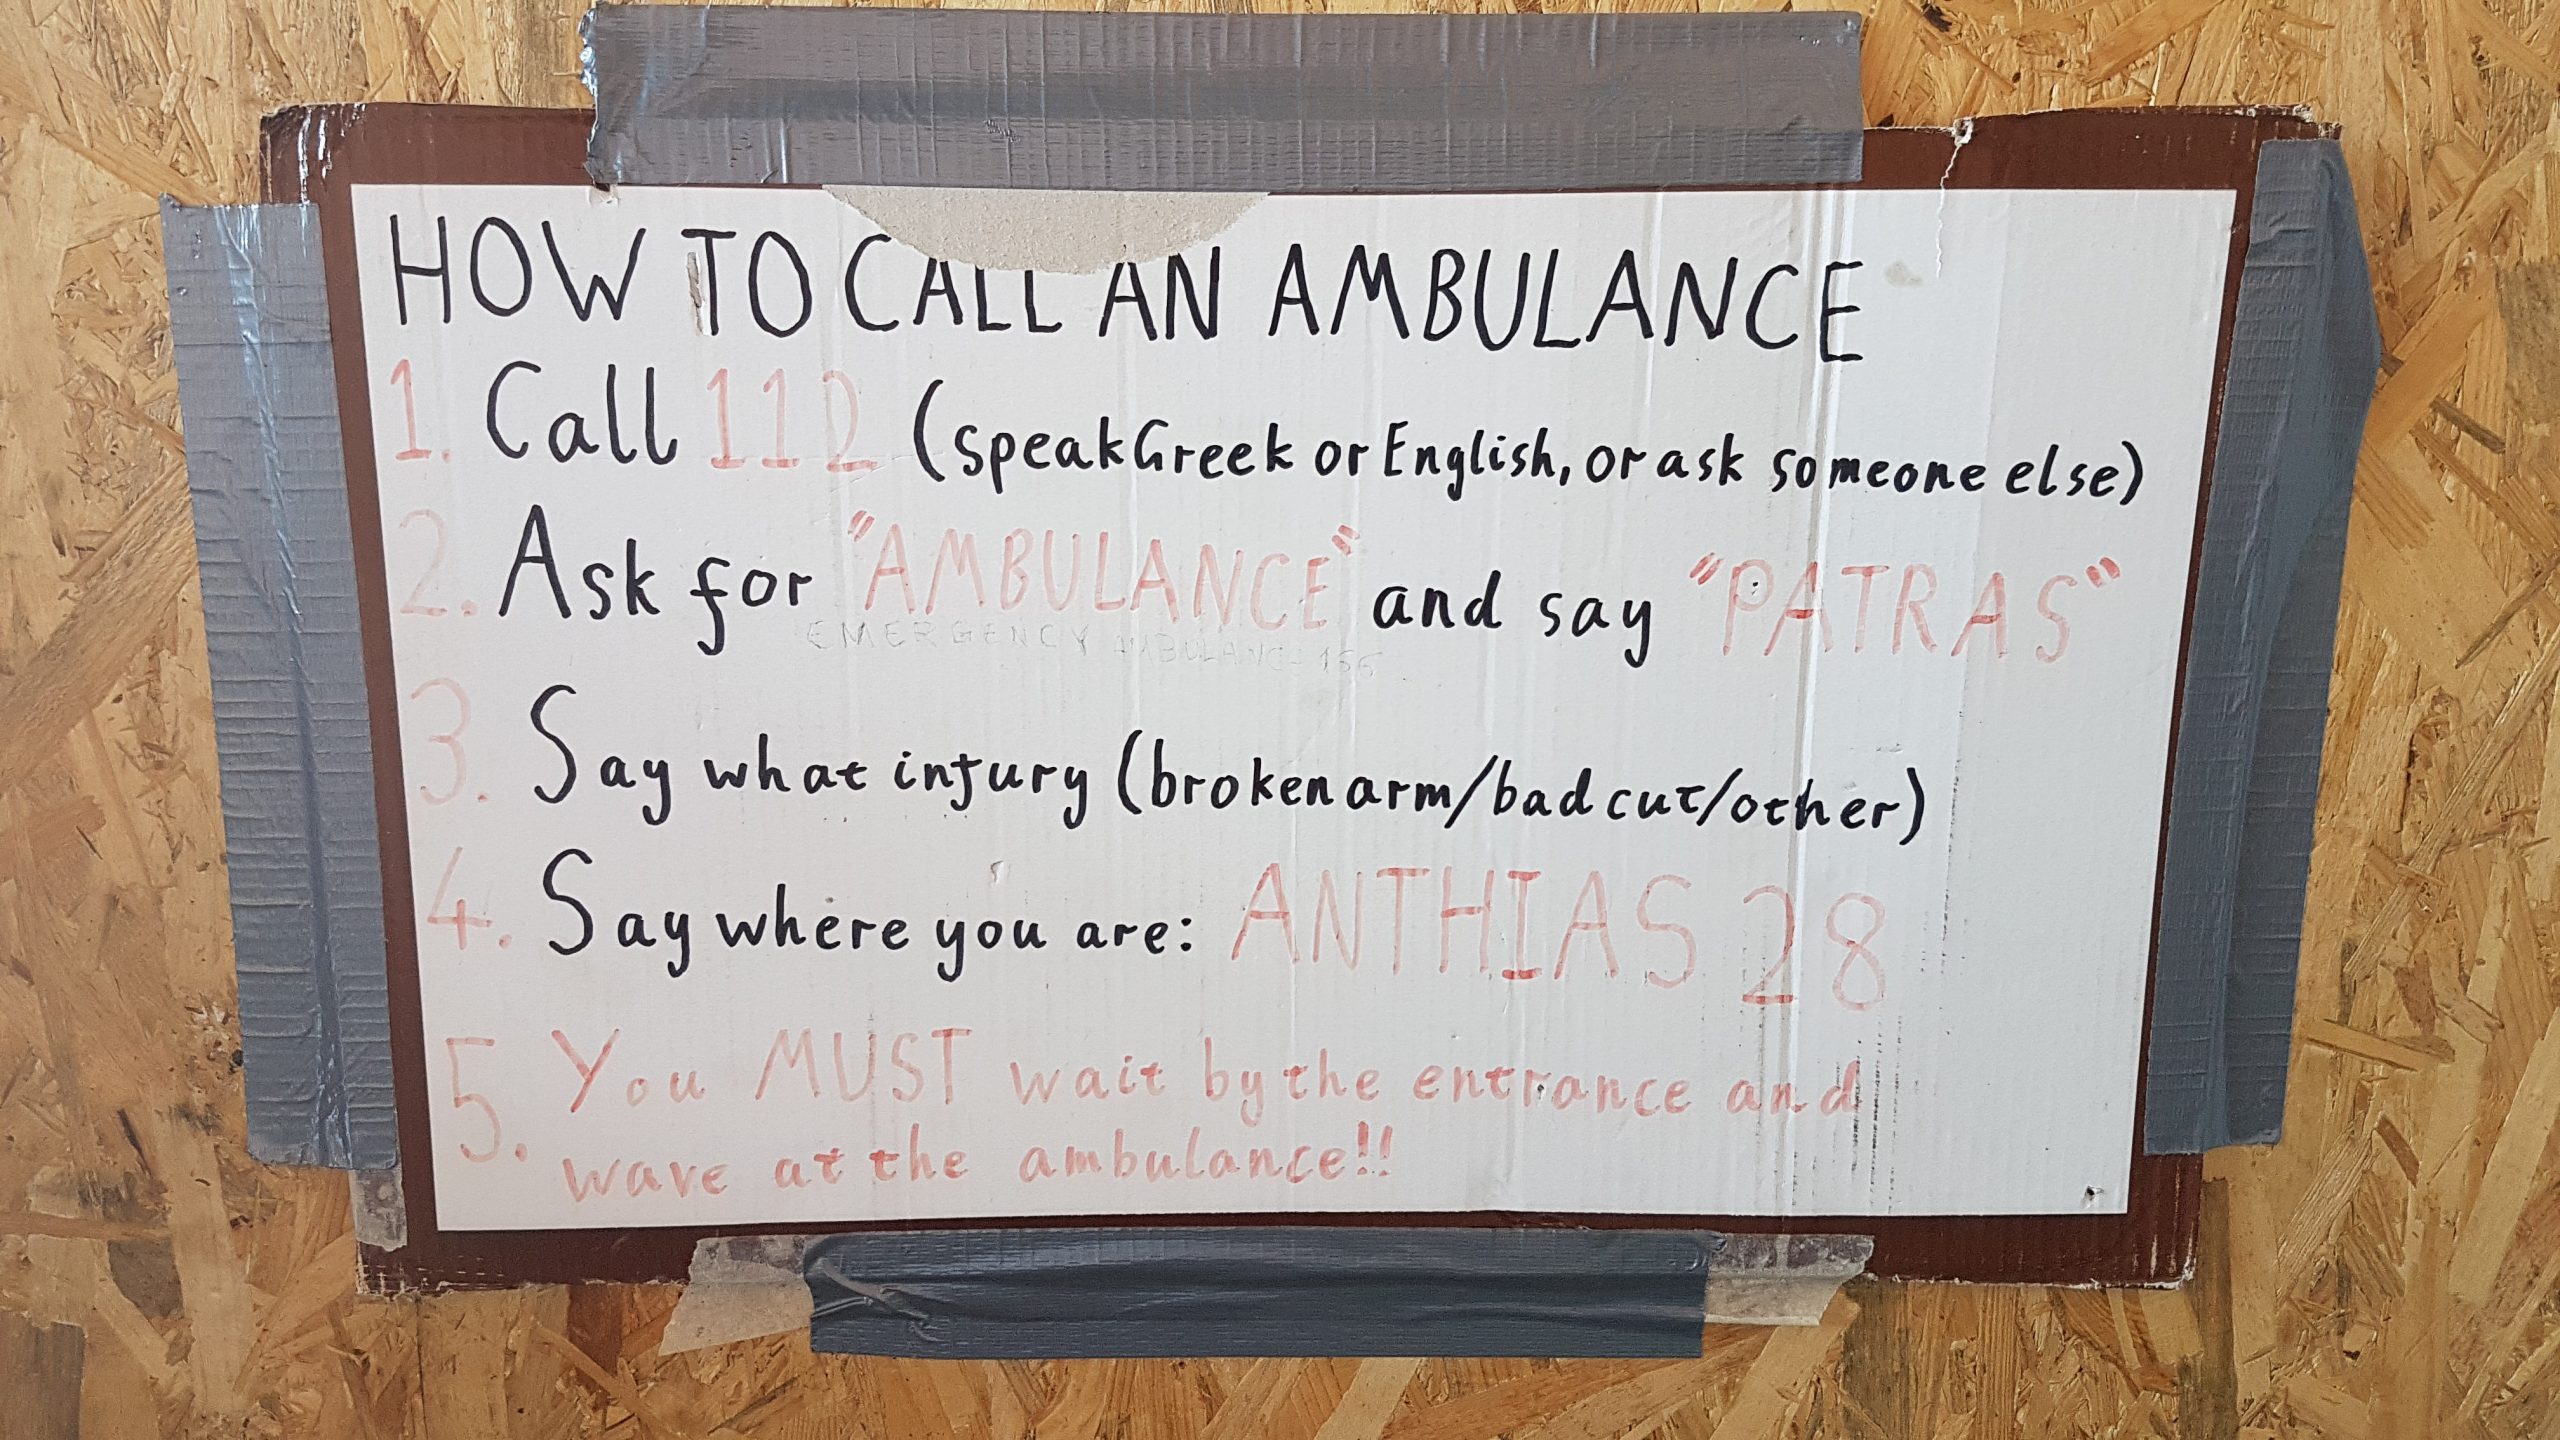 HOW TO CALL AN AMBULANCE
1. Call 112 (speak Greek or English, or ask someone else)
2. Ask for "AMBULANCE" and say "PATRAS"
EMERGENCY AMBULANCE 166
3. Say what injury (broken arm/bad cut/other)
4. Say where you are: ANTHIAS 28
5. You MUST wait by the entrance and
wave at the ambulance!!